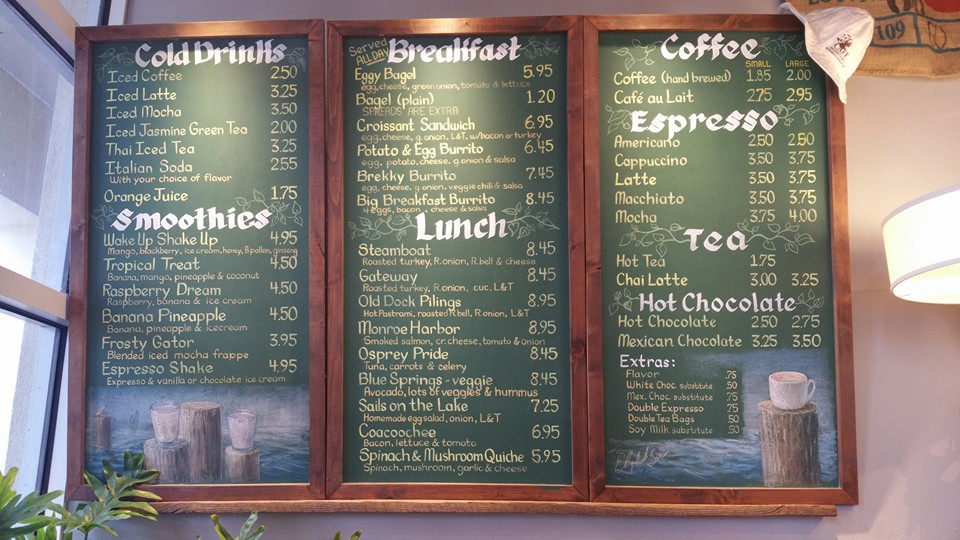 Cold Drinks
Iced Coffee 2.50
Iced Latte 3.25
Iced Mocha 3.50
Iced Jasmine Green Tea 2.00
Thai Iced Tea 3.25
Italian Soda 2.55
With your choice of flavor
Orange Juice 1.75
Smoothies
Wake Up Shake Up 4.95
Mango, blackberry, ice cream, honey, B.pollen, ginseng
Tropical Treat 4.50
Banana, mango, pineapple & coconut
Raspberry Dream 4.50
Raspberry, banana & ice cream
Banana Pineapple 4.50
Banana, pineapple & icecream
Frosty Gator 3.95
Blended iced mocha frappe
Espresso Shake 4.95
Espresso & vanilla or chocolate ice cream
Served ALLDAY
Breakfast
Eggy Bagel 5.95
egg, cheese, green onion, tomato & lettuce
Bagel (plain) 1.20
SPREADS ARE EXTRA
Croissant Sandwich 6.95
egg, cheese, g. onion, L&T, w/bacon or turkey
Potato & Egg Burrito 6.45
egg, potato, cheese, g.onion & salsa
Brekky Burrito 7.45
egg, cheese, g.onion, veggie chili & salsa
Big Breakfast Burrito 8.45
4 eggs, bacon, cheese & salsa
Lunch
Steamboat 8.45
Roasted turkey, R.onion, R.bell & cheese
Gateway 8.45
Roasted turkey, R.onion, cuc, L&T
Old Dock Pilings 8.95
Hot Pastrami, roasted R.bell, R.onion, L&T
Monroe Harbor 8.95
Smoked salmon, cr.cheese, tomato & onion
Osprey Pride 8.45
Tuna, carrots & celery
Blue Springs - veggie 8.45
Avocado, lots of veggies & hummus
Sails on the Lake 7.25
Homemade egg salad, onion, L&T
Coacoochee 6.95
Bacon, lettuce & tomato
Spinach & Mushroom Quiche 5.95
Spinach, mushroom, garlic & cheese
Coffee
SMALL LARGE
Coffee (hand brewed) 1.85 2.00
Café au Lait 2.75 2.95
Espresso
Americano 2.50 2.50
Cappuccino 3.50 3.75
Latte 3.50 3.75
Macchiato 3.50 3.75
Mocha 3.75 4.00
Tea
Hot Tea 1.75
Chai Latte 3.00 3.25
Hot Chocolate
Hot Chocolate 2.50 2.75
Mexican Chocolate 3.25 3.50
Extras:
Flavor .75
White Choc. substitute .50
Mex. Choc. substitute .75
Double Expresso .75
Double Tea Bags .50
Soy Milk substitute .50
109